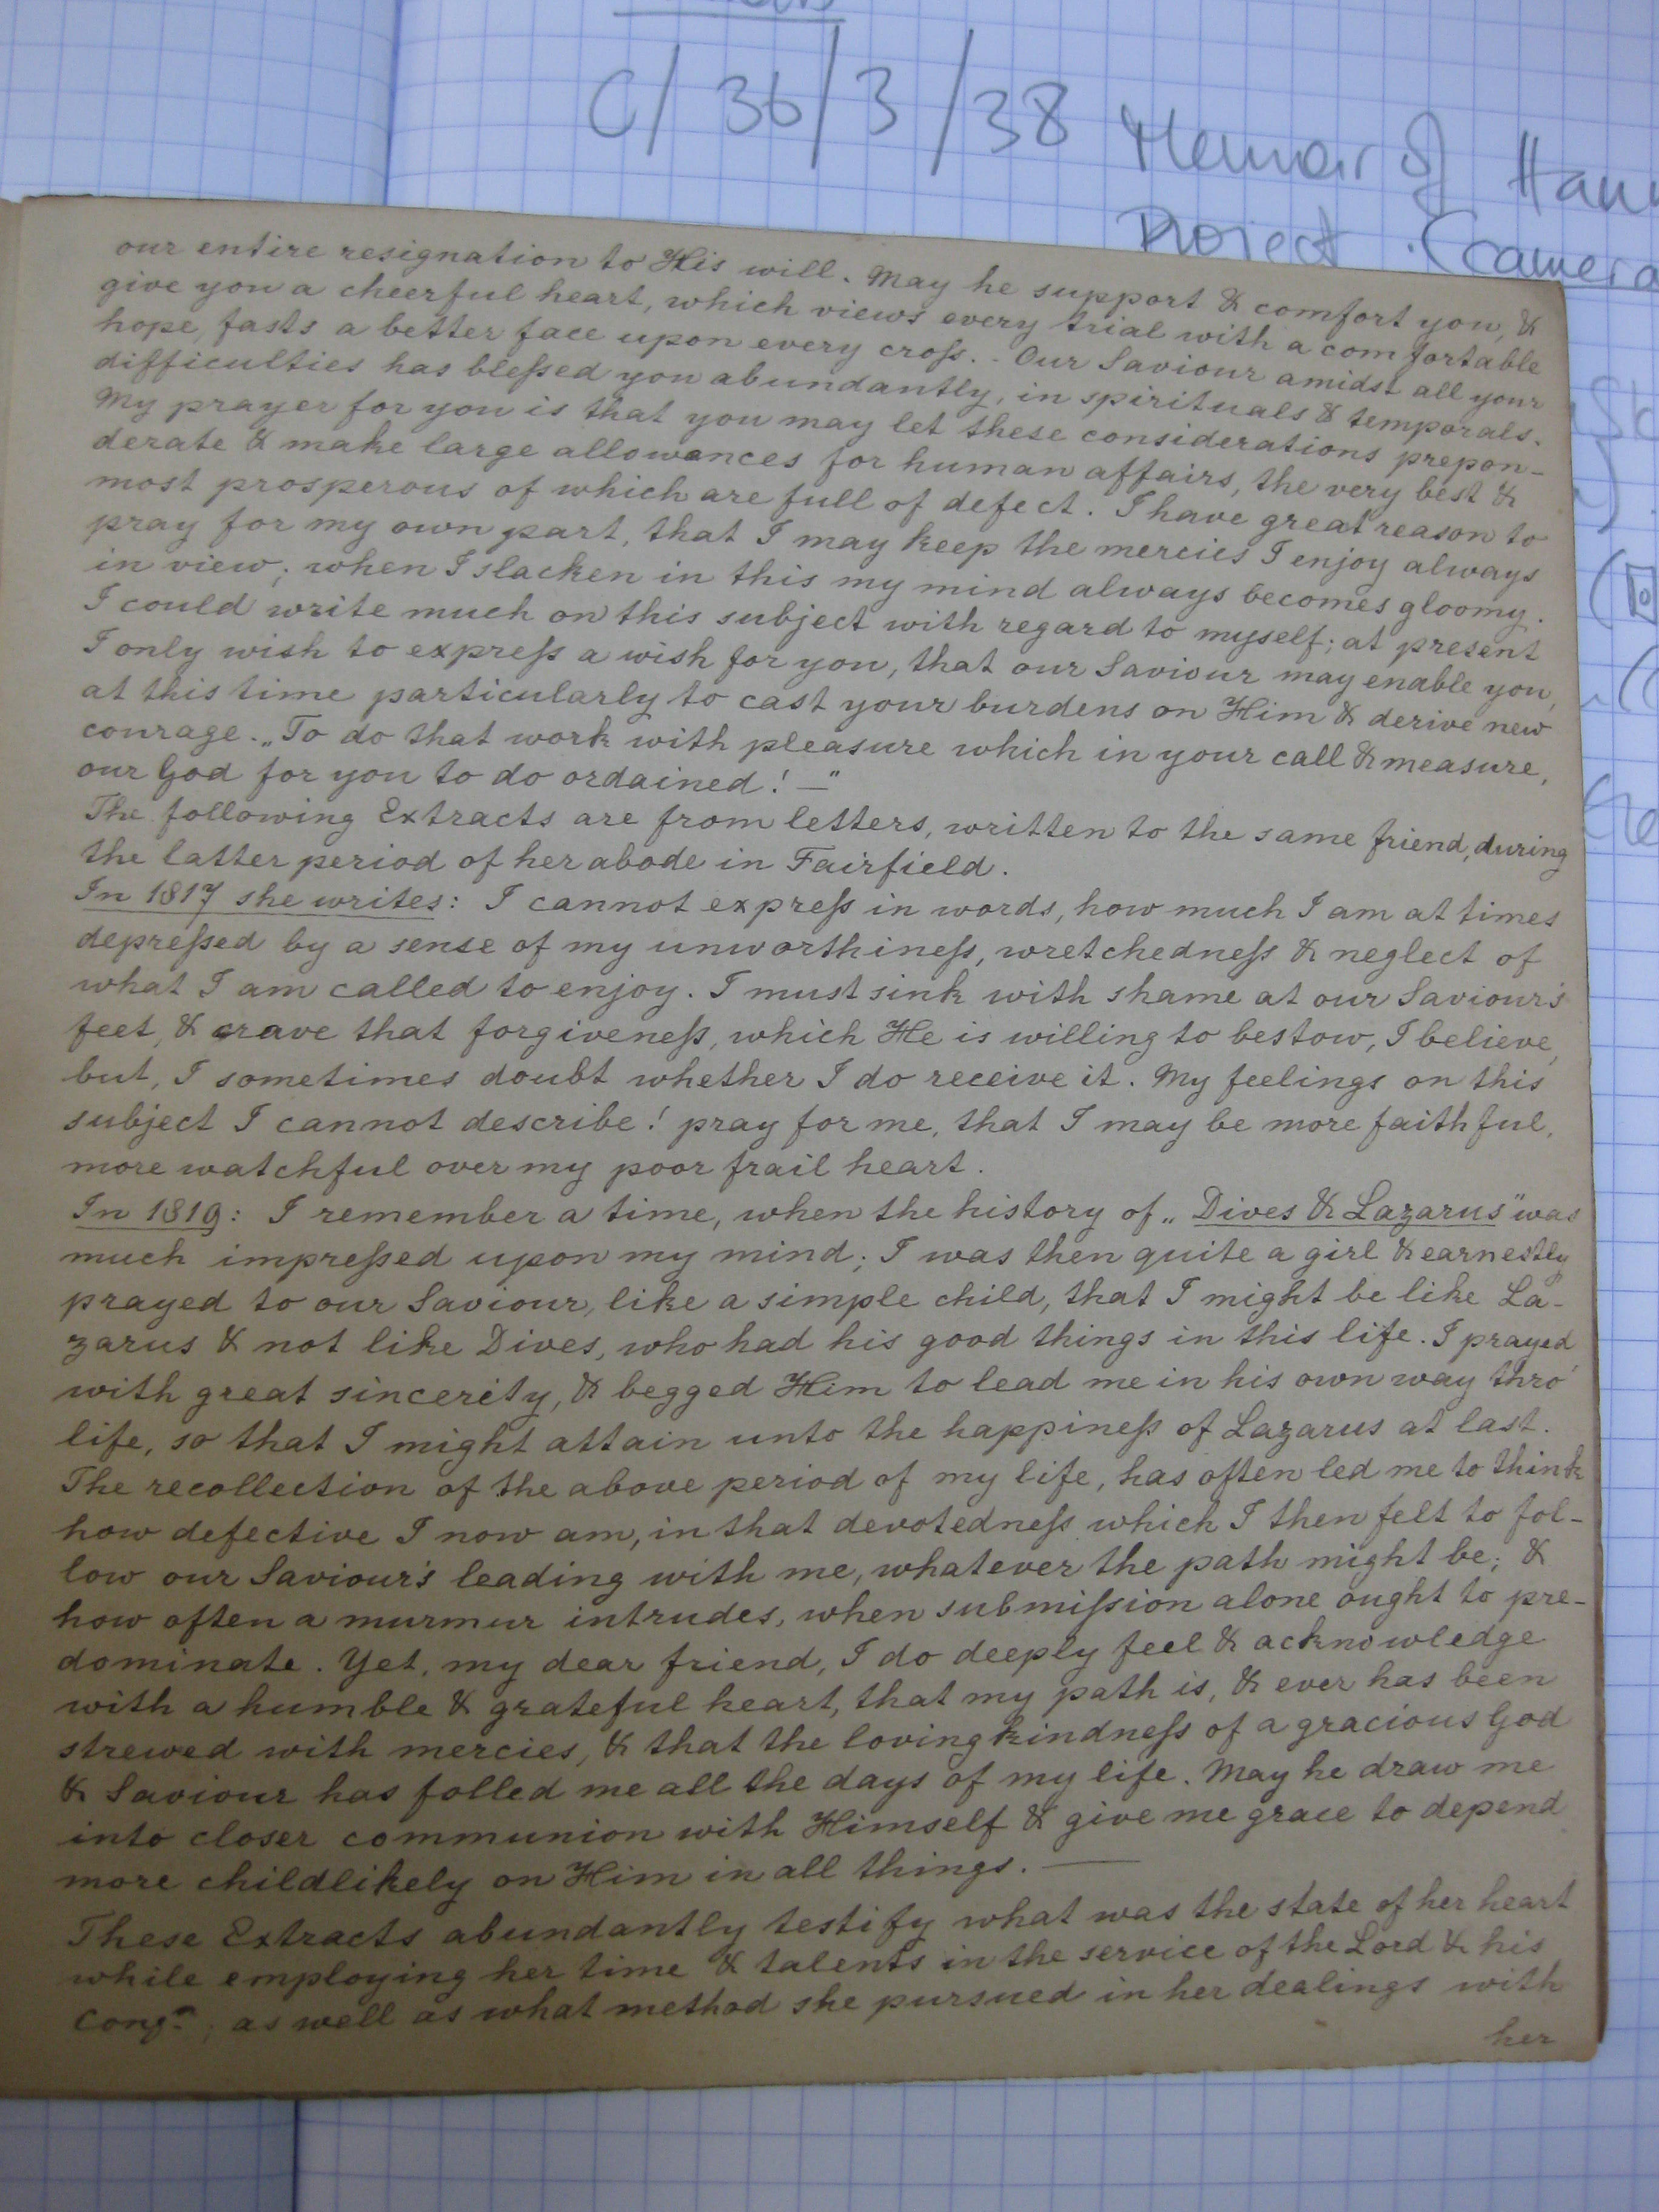 C/36/3/38 Memoir of
Project (camera
our entire resignation to His will. May he support & comfort you, &
give you a cheerful heart, which views every trial with a comfortable
hope, fasts a better face upon every croſs. - Our Saviour amidst all your
difficulties has bleſsed you abundantly, in spirituals & temporals.
My prayer for you is that you may let these considerations prepon-
derate & make large allowances for human affairs, the very best &
most prosperous of which are full of defect. I have great reason to
pray for my own part, that I may keep the mercies I enjoy always
in view; when I slacken in this my mind always becomes gloomy.
I could write much on this subject with regard to myself; at present
I only wish to expreſs a wish for you, that our Saviour may enable you,
at this time particularly to cast your burdens on Him & derive new
courage. „To do that work with pleasure which in your call & measure,
our God for you to do ordained! —"
The following Extracts are from letters, written to the same friend, during
the latter period of her abode in Fairfield.
In 1817 she writes: I cannot expreſs in words, how much I am at times
depreſsed by a sense of my unworthineſs, wretchedneſs & neglect of
what I am called to enjoy. I must sink with shame at our Saviour's
feet, & crave that forgiveneſs, which He is willing to bestow, I believe,
but, I sometimes doubt whether I do receive it. My feelings on this
subject I cannot describe! pray for me, that I may be more faithful,
more watchful over my poor frail heart.
In 1819: I remember a time, when the history of „Dives & Lazarus" was
much impreſsed upon my mind; I was then quite a girl & earnestly
prayed to our Saviour, like a simple child, that I might be like La-
zarus & not like Dives, who had his good things in this life. I prayed
with great sincerity, & begged Him to lead me in his own way thro'
life, so that I might attain unto the happineſs of Lazarus at last.
The recollection of the above period of my life, has often led me to think
how defective I now am, in that devotedneſs which I then felt to fol-
low our Saviour's leading with me, whatever the path might be; &
how often a murmur intrudes, when submiſsion alone ought to pre-
dominate. Yet, my dear friend, I do deeply feel & acknowledge
with a humble & grateful heart, that my path is, & ever has been
strewed with mercies, & that the loving kindneſs of a gracious God
& Saviour has folled me all the days of my life. May he draw me
into closer communion with Himself & give me grace to depend
more childlikely on Him in all things. —
These Extracts abundantly testify what was the state of her heart
while employing her time & talents in the service of the Lord & his
Congn; as well as what method she pursued in her dealings with
her